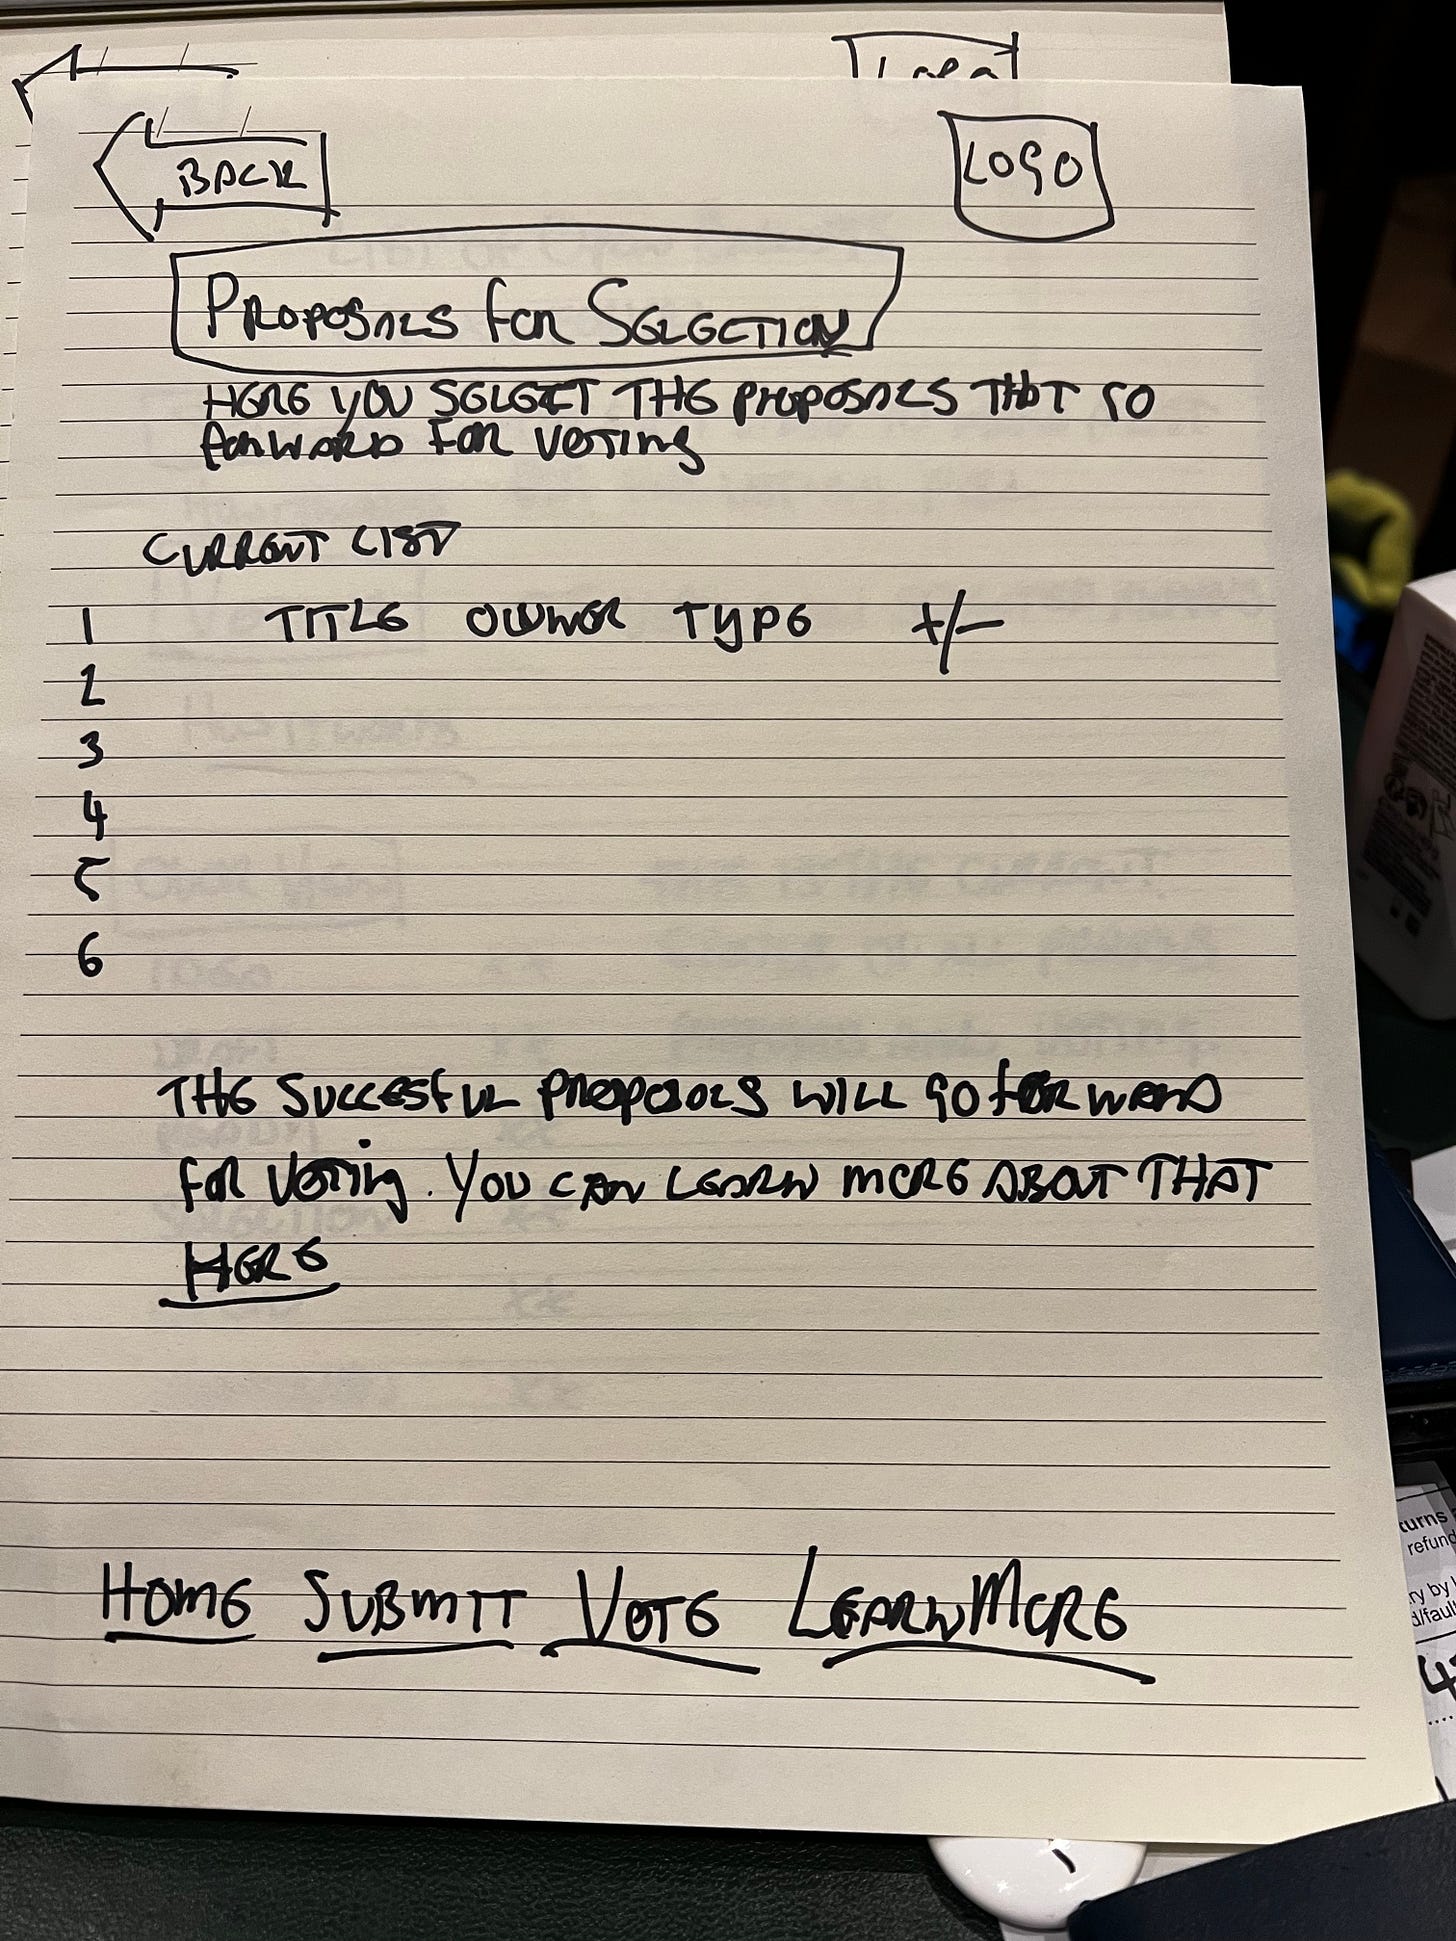 BACK
LOGO
PROPOSALS FOR SELECTION
HERE YOU SELECT THE PROPOSALS THAT GO
FORWARD FOR VOTING
CURRENT LIST
1 TITLE OWNER TYPE +/-
2
3
4
5
6
THE SUCCESFUL PROPOSALS WILL GO FORWARD
FOR VOTING. YOU CAN LEARN MORE ABOUT THAT
HERE
HOME SUBMIT VOTE LEARN MORE
turns
refund